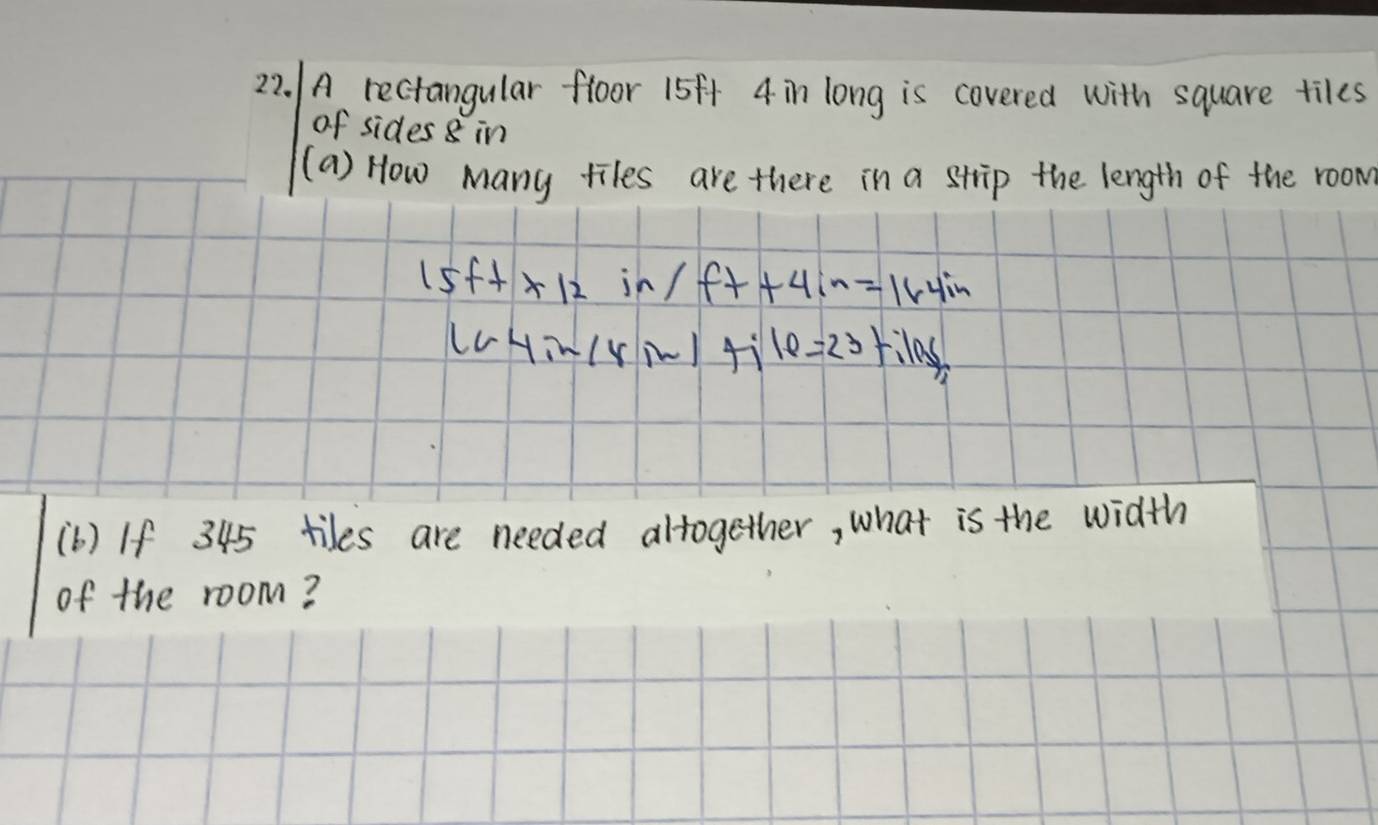 22. A rectangular floor 15ft 4 in long is covered with square tiles
of sides 8 in
(a) How many tiles are there in a strip the length of the room
15ft x 12 in / ft + 4in = 184in
184in / 8 in / tile = 23 tiles
(b) If 345 tiles are needed altogether, what is the width
of the room?